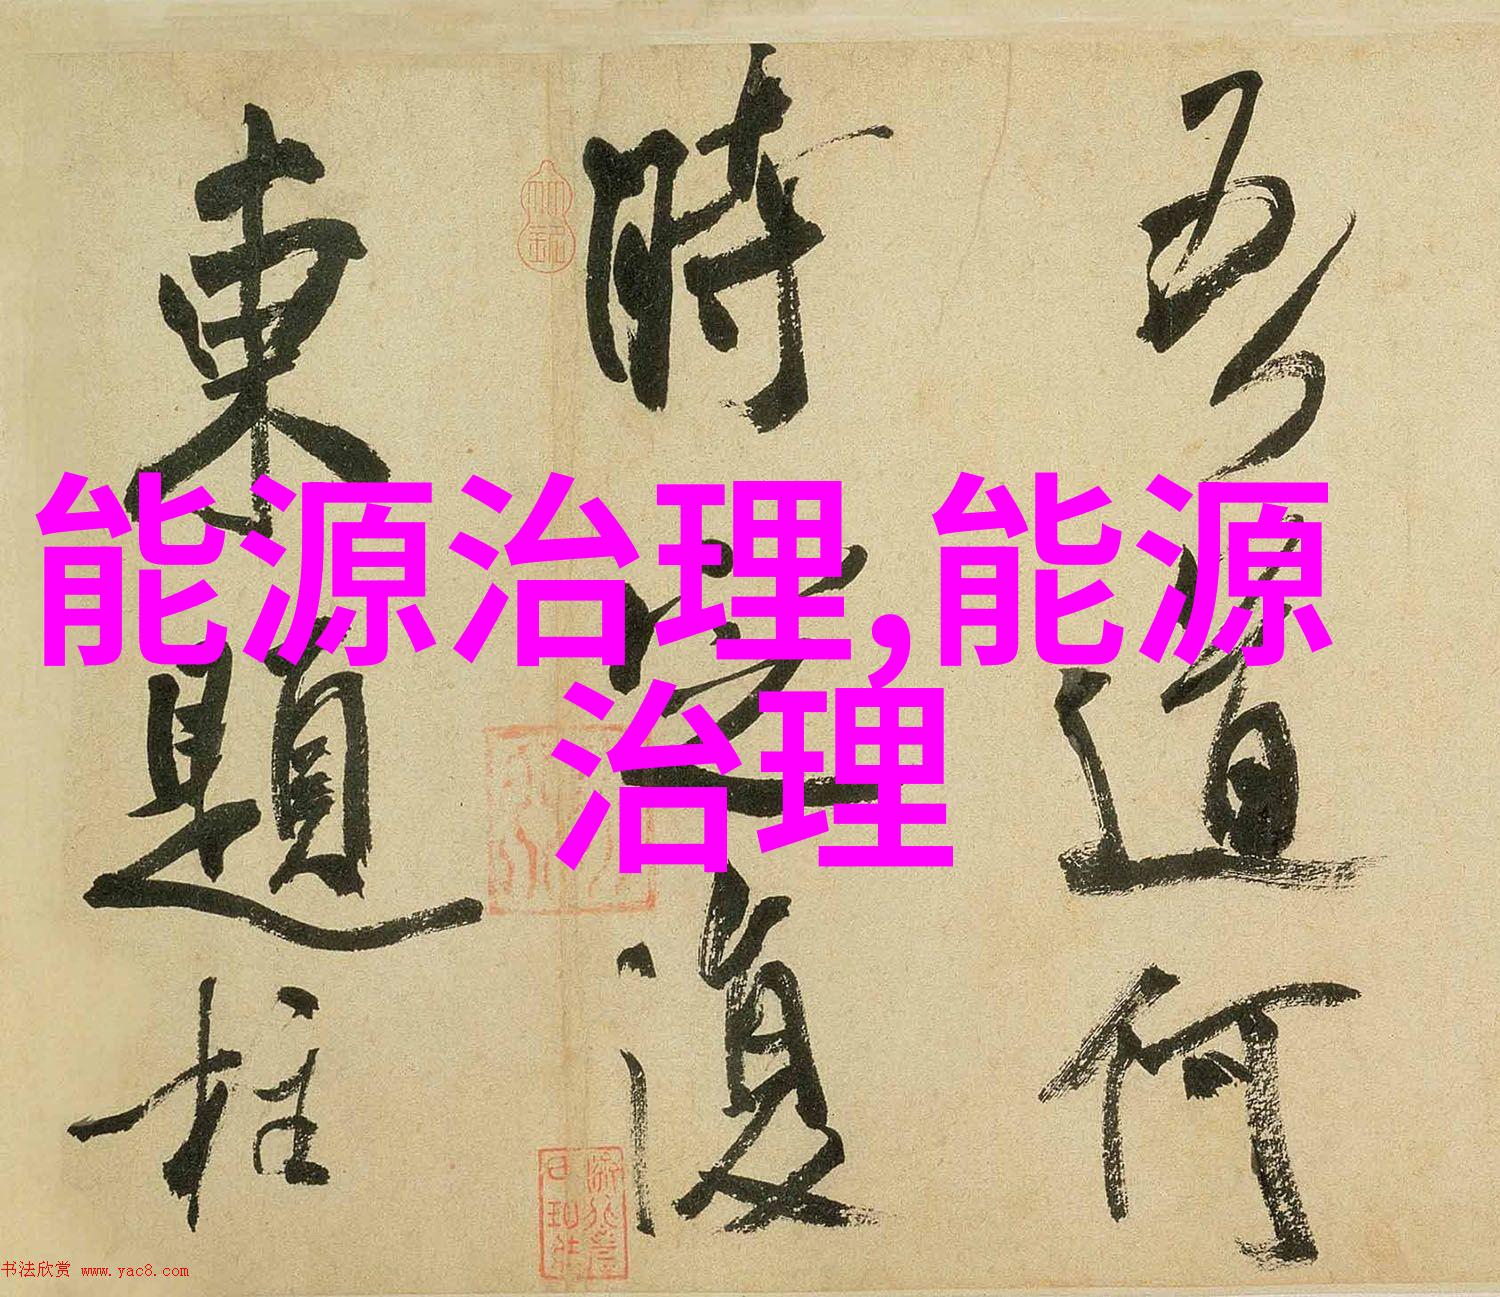 吾道何
時定復
東題柱
能源治理,能源
治理
书法欣赏 www.yac8.com